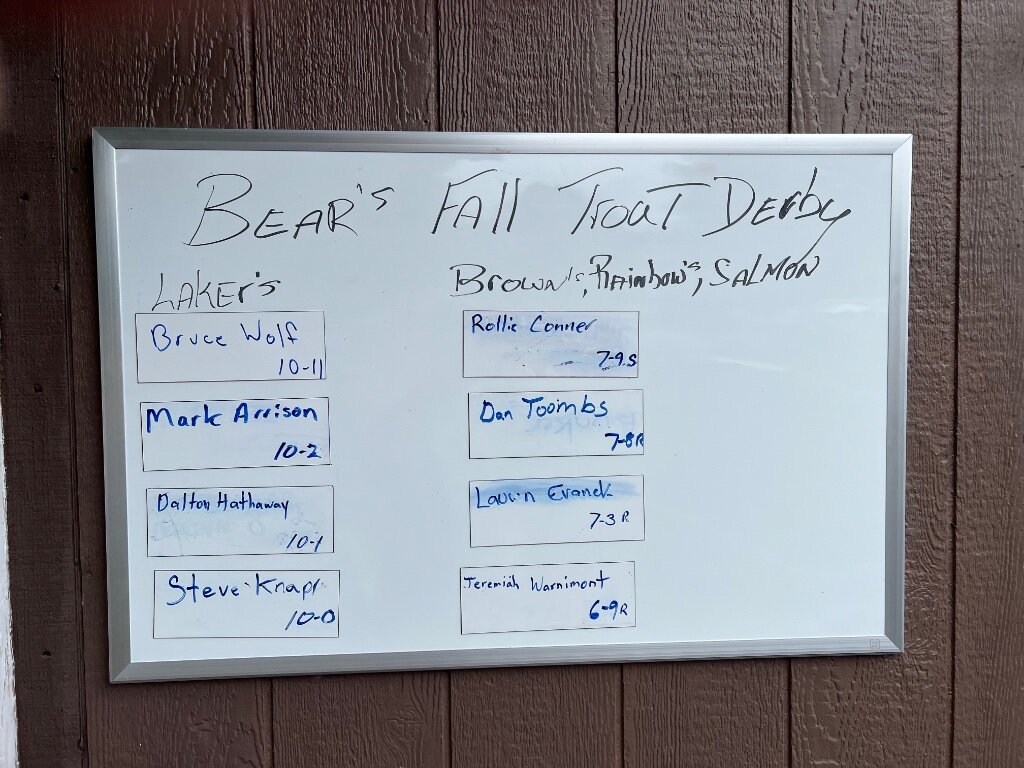 BEAR's FAll TrouT Derby
LAKEr's
Bruce Wolf
10-11
Mark Arrison
10-2
Dalton Hathaway
10-1
Steve Knapp
10-0
Brown's, RAinbow's, SALMON
Rollie Conner
7-9 S
Dan Toombs
7-8 R
Evanek
7-3 R
Jeremiah Warnimont
6-9 R